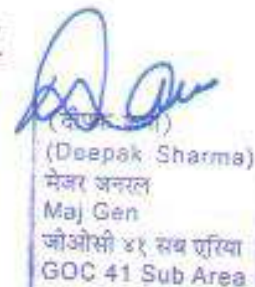 (दीपक शर्मा)
(Deepak Sharma)
मेजर जनरल
Maj Gen
जीओसी ४१ सब एरिया
GOC 41 Sub Area